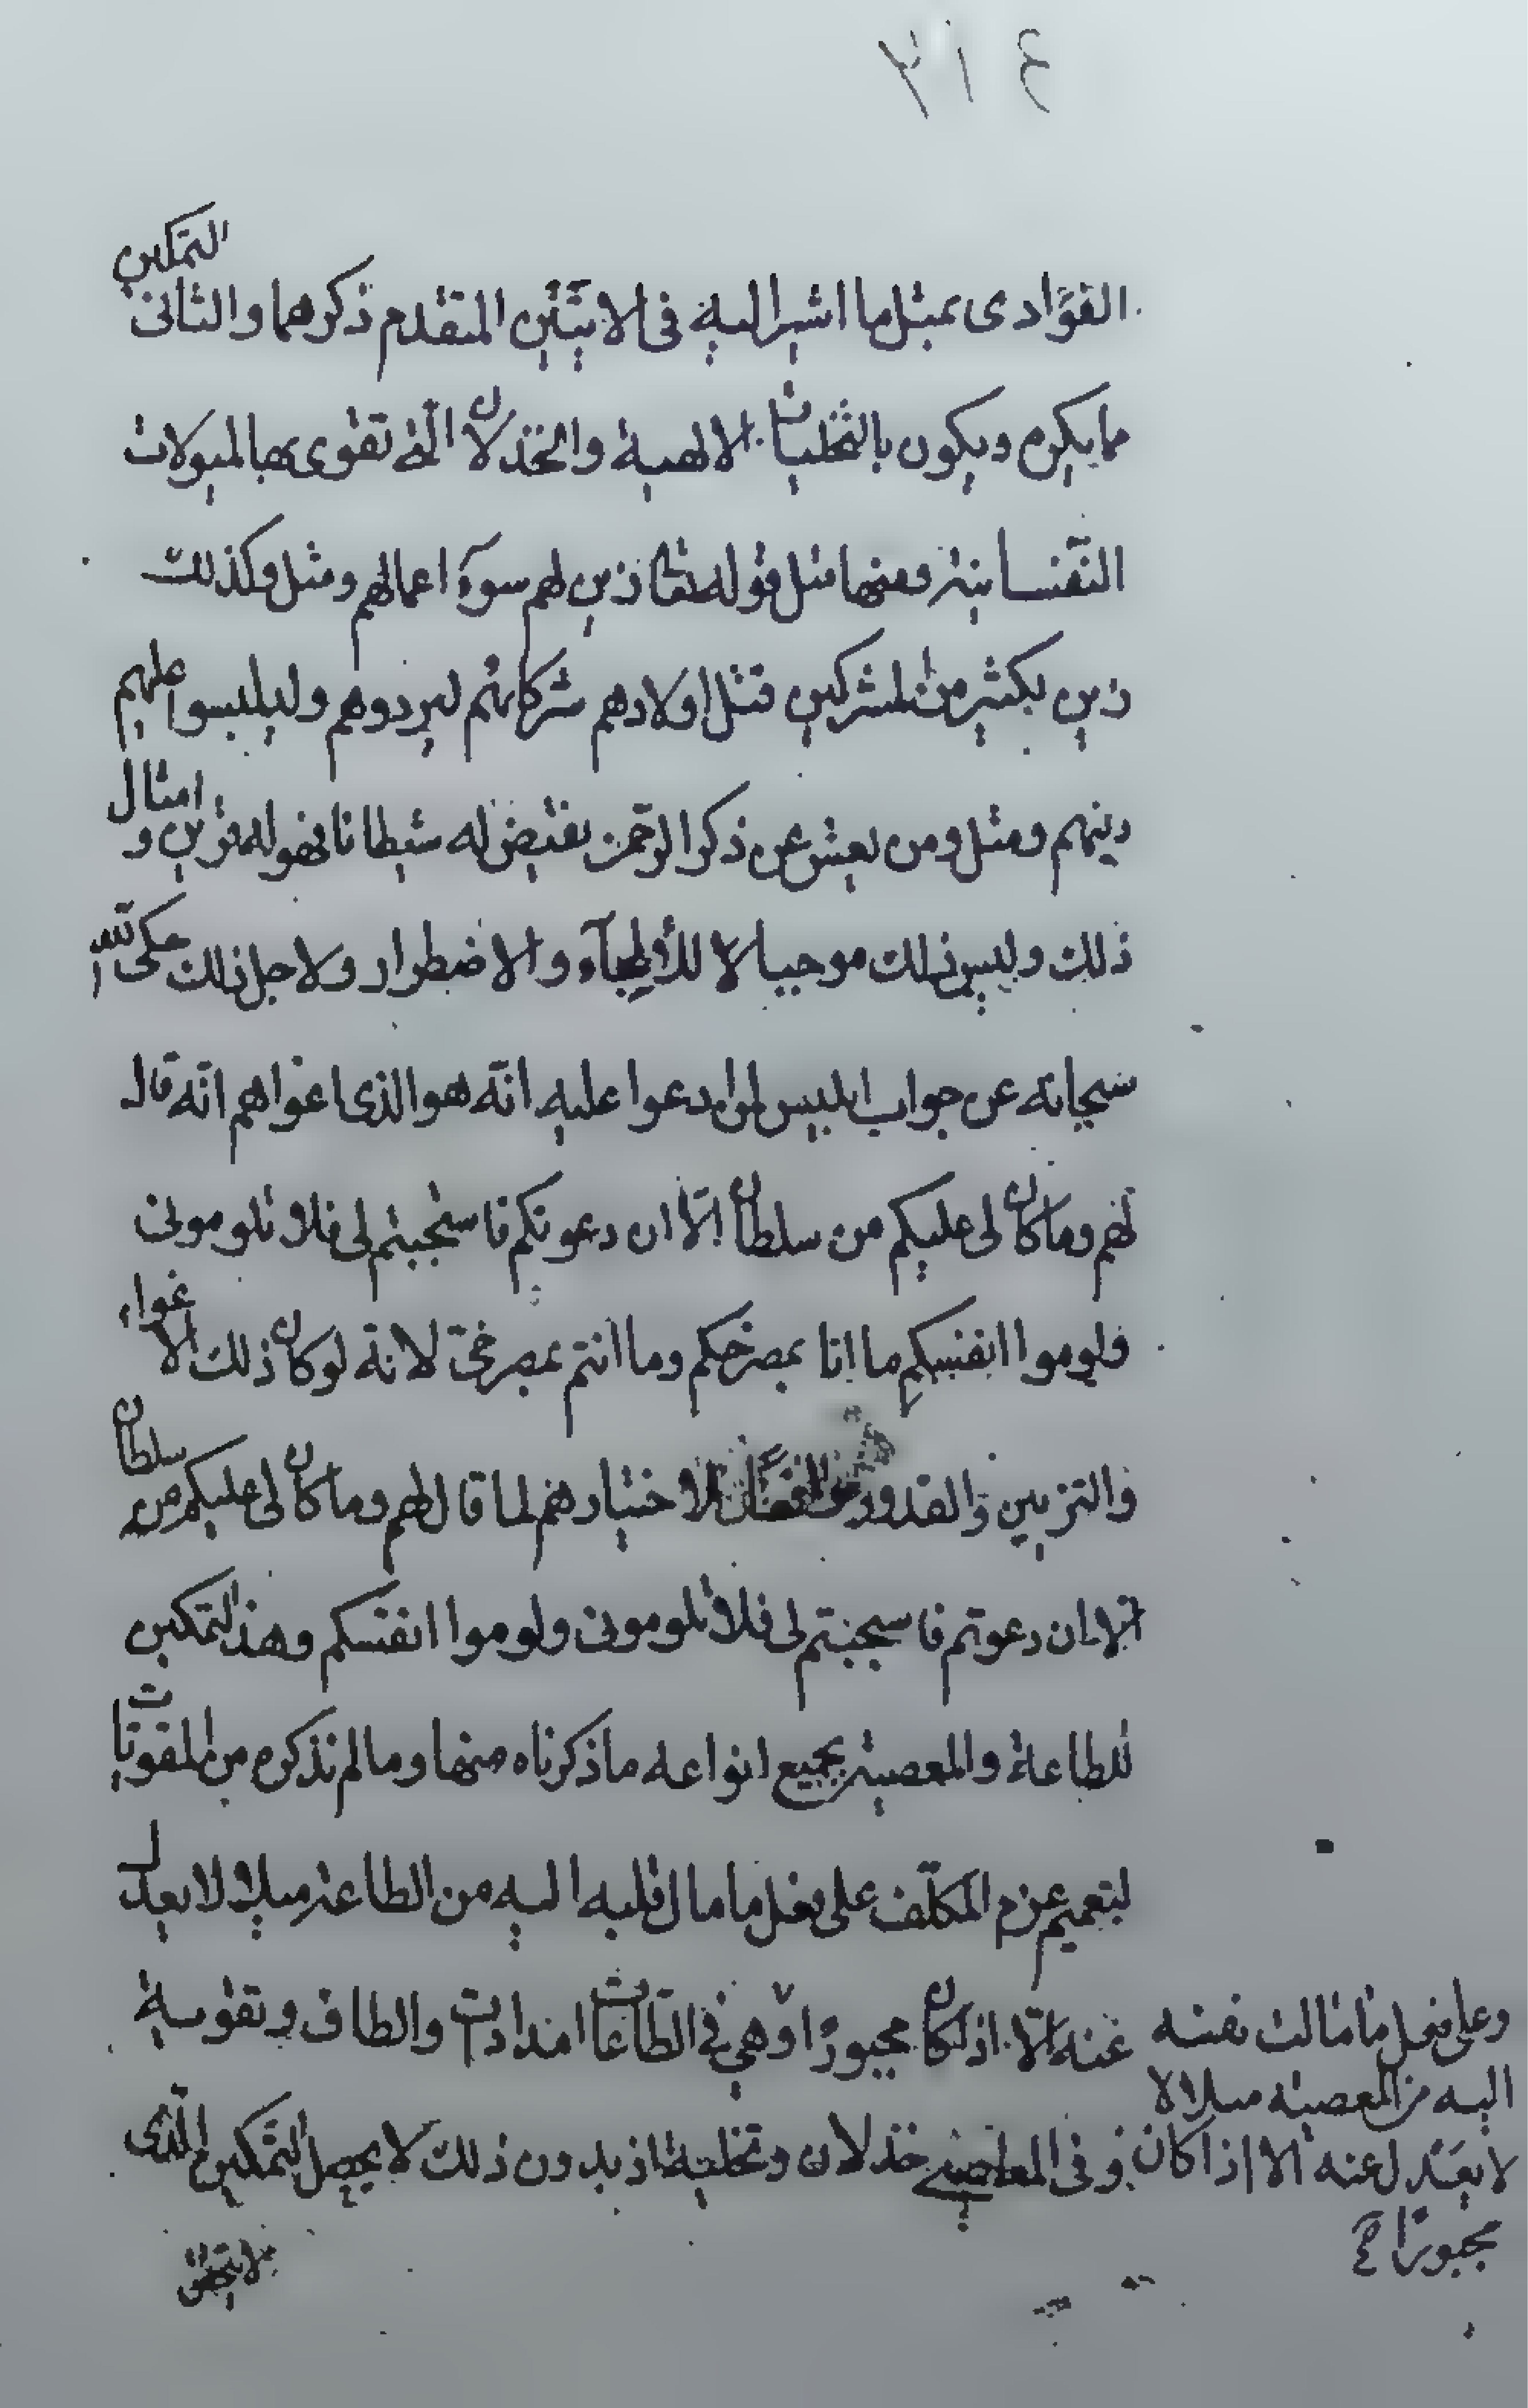 ٣١٤
الفؤادى بمثل ما اشير اليه فى الايتين المتقدم ذكرهما والثانى التمكين
مما يكره ويكون بالتخليات الالهية والخذلان الّتى تقوى بها الميولات
النّفسانية ومنها مثل قوله تعالى زين لهم سوۤء اعمالهم ومثل وكذلك
زين لكثير من المشركين قتل اولادهم شركائهم ليردوهم وليلبسوا عليهم
دينهم ومثل ومن يعش عن ذكر الرّحمن نقيض له شيطانا فهو له قرين وامثال
ذلك وليس ذلك موجبا لالجآء والاضطرار ولاجل ذلك حكى الله
سبحانه عن جواب ابليس لمن ادعوا عليه انّه هو الذى اغواهم انّه قال
لهم وما كان لى عليكم من سلطان الّا ان دعوتكم فاستجبتم لى فلا تلومونى
فلوموا انفسكم ما انا بمصرخكم وما انتم بمصرخىّ لانّه لو كان ذلك الاغواء
والتزيين والقدور لاختيارهم لما قال لهم وما كان لى عليكم من سلطان
الّا ان دعوتم فاستجبتم لى فلا تلومونى ولوموا انفسكم وهذا التمكين
للطاعة والمعصية بجميع انواعه ما ذكرناه منها وما لم نذكره من المقوّيات
لتعميم عزم المكلّف على فعل ما مال قلبه اليه من الطاعة ميلا لا يعدل
عنه الّا اذا كان مجبورًا وهى فى الطّاعات امدادات والطاف وتقوية
وفى المعاصى خذلان وتخلية اذ بدون ذلك لا يحصل التّمكين الّذى
لا يتحقق
وعلى فعل ما مالت نفسه
اليه من المعصية ميلا لا
لا يعدل عنه الا اذا كان
مجبورًا